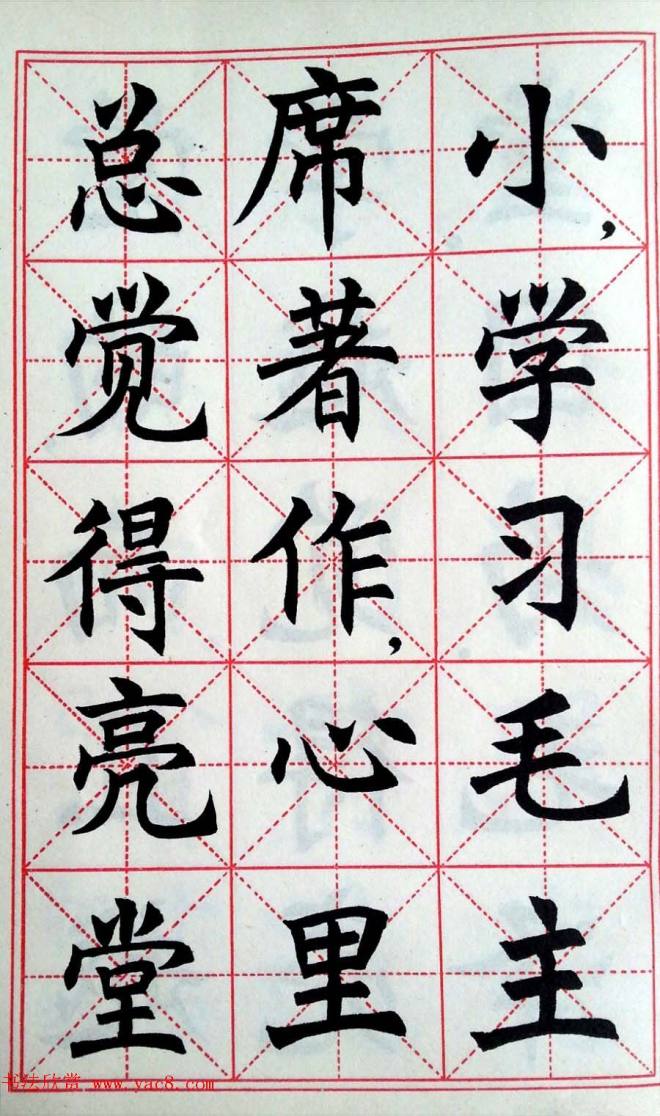 小，学习毛主
席著作，心里
总觉得亮堂
书法欣赏 www.yac8.com